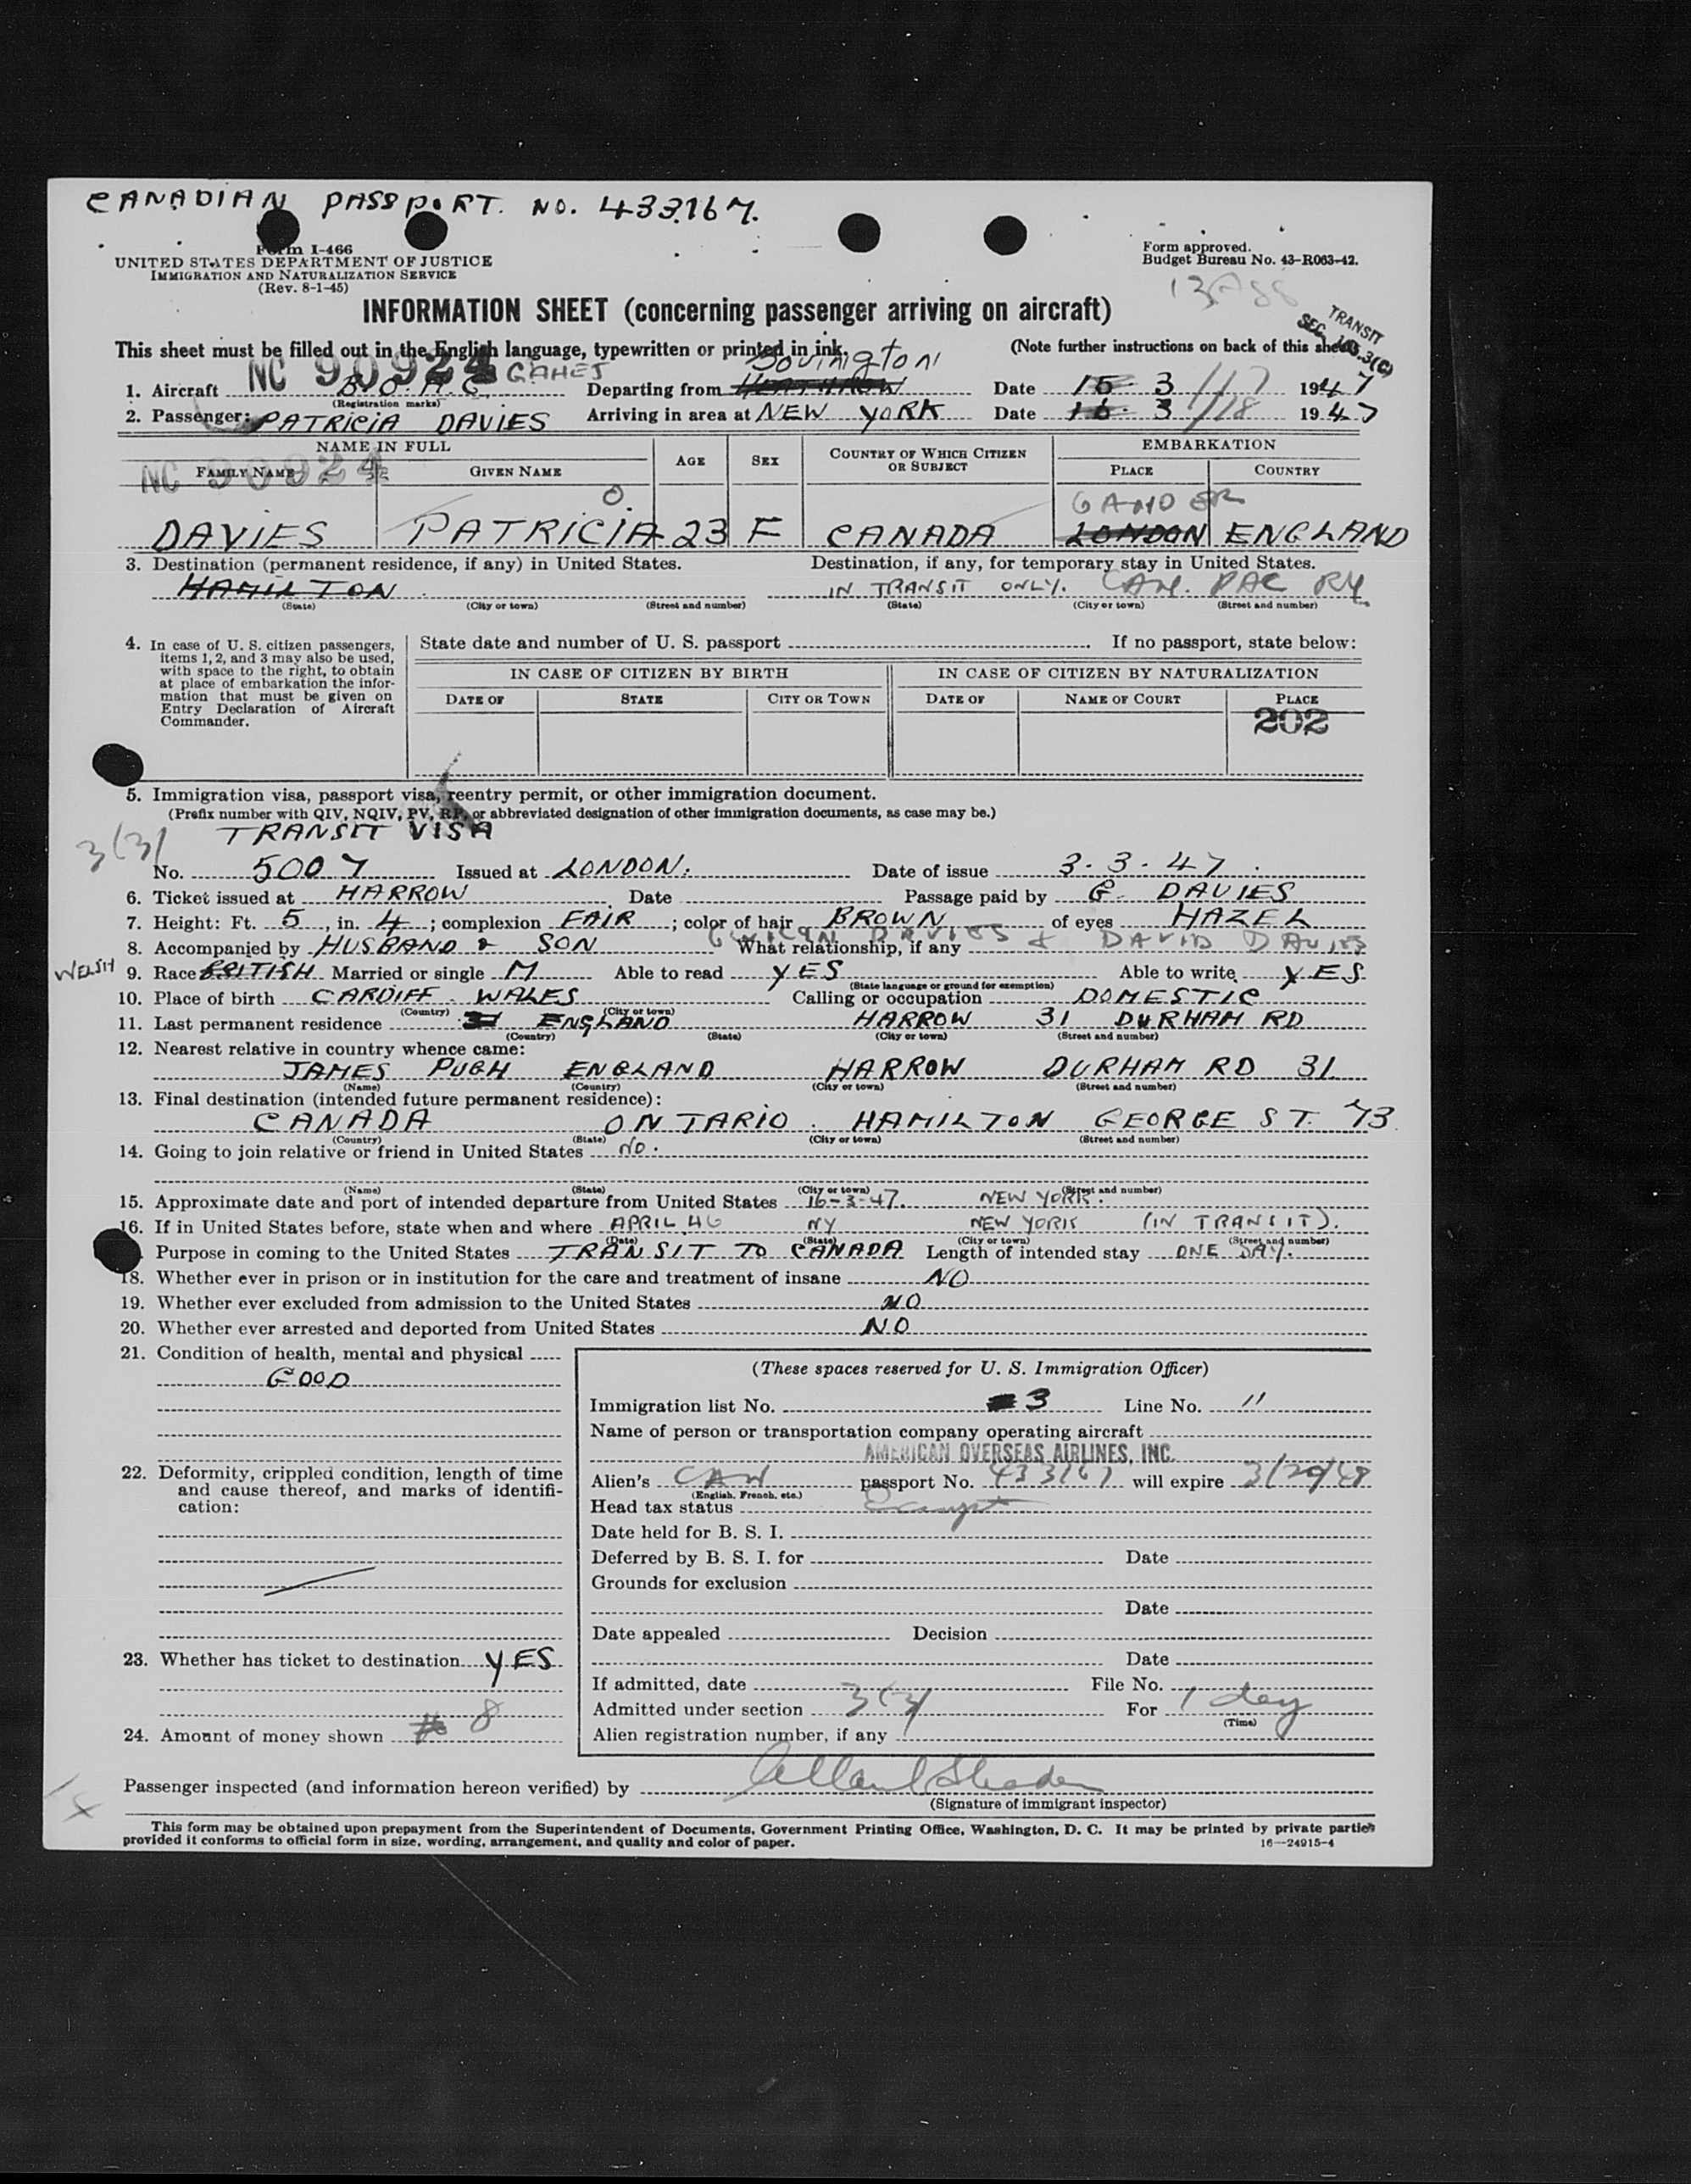 CANADIAN PASSPORT. NO. 433167.
Form I-466
UNITED STATES DEPARTMENT OF JUSTICE
IMMIGRATION AND NATURALIZATION SERVICE
(Rev. 8-1-45)
Form approved.
Budget Bureau No. 43-R063-42.
INFORMATION SHEET (concerning passenger arriving on aircraft)
TRANSIT
SEC. 3(3)
This sheet must be filled out in the English language, typewritten or printed in ink.
(Note further instructions on back of this sheet)
NC 90924
Bovington
1. Aircraft B.O.A.C. Departing from HEATHROW Date 15 3 /17 1947
(Registration marks)
2. Passenger: PATRICIA DAVIES Arriving in area at NEW YORK Date 16. 3 /18 1947
NAME IN FULL AGE SEX COUNTRY OF WHICH CITIZEN OR SUBJECT EMBARKATION
FAMILY NAME GIVEN NAME PLACE COUNTRY
NC 90924
O. GANDER
DAVIES PATRICIA 23 F CANADA LONDON ENGLAND
3. Destination (permanent residence, if any) in United States. Destination, if any, for temporary stay in United States.
HAMILTON IN TRANSIT ONLY. CAN. PAC RY.
(State) (City or town) (Street and number) (State) (City or town) (Street and number)
4. In case of U. S. citizen passengers, items 1, 2, and 3 may also be used, with space to the right, to obtain at place of embarkation the information that must be given on Entry Declaration of Aircraft Commander.
State date and number of U. S. passport If no passport, state below:
IN CASE OF CITIZEN BY BIRTH IN CASE OF CITIZEN BY NATURALIZATION
DATE OF STATE CITY OR TOWN DATE OF NAME OF COURT PLACE
202
5. Immigration visa, passport visa, reentry permit, or other immigration document.
(Prefix number with QIV, NQIV, PV, RP, or abbreviated designation of other immigration documents, as case may be.)
3(3) TRANSIT VISA
No. 5007 Issued at LONDON. Date of issue 3. 3. 47.
6. Ticket issued at HARROW Date Passage paid by G. DAVIES
7. Height: Ft. 5, in. 4; complexion FAIR; color of hair BROWN of eyes HAZEL
8. Accompanied by HUSBAND & SON What relationship, if any DAVIES & DAVID DAVIES
WELSH 9. Race BRITISH Married or single M Able to read YES Able to write YES
(State language or ground for exemption)
10. Place of birth CARDIFF. WALES Calling or occupation DOMESTIC
(Country) (City or town)
11. Last permanent residence ENGLAND HARROW 31 DURHAM RD
(Country) (State) (City or town) (Street and number)
12. Nearest relative in country whence came:
JAMES PUGH ENGLAND HARROW DURHAM RD 31
(Name) (Country) (City or town) (Street and number)
13. Final destination (intended future permanent residence):
CANADA ONTARIO. HAMILTON GEORGE ST. 73
(Country) (State) (City or town) (Street and number)
14. Going to join relative or friend in United States NO.
(Name) (State) (City or town) (Street and number)
15. Approximate date and port of intended departure from United States 16-3-47. NEW YORK.
16. If in United States before, state when and where APRIL 46 NY NEW YORK (IN TRANSIT).
(Date) (State) (City or town) (Street and number)
Purpose in coming to the United States TRANSIT TO CANADA Length of intended stay ONE DAY.
18. Whether ever in prison or in institution for the care and treatment of insane NO
19. Whether ever excluded from admission to the United States NO
20. Whether ever arrested and deported from United States NO
21. Condition of health, mental and physical
GOOD
22. Deformity, crippled condition, length of time and cause thereof, and marks of identification:
23. Whether has ticket to destination YES
24. Amount of money shown 8
(These spaces reserved for U. S. Immigration Officer)
Immigration list No. 3 Line No. 11
Name of person or transportation company operating aircraft
AMERICAN OVERSEAS AIRLINES, INC.
Alien's CAN passport No. 433167 will expire 3/20/48
(English, French, etc.)
Head tax status Exempt
Date held for B. S. I.
Deferred by B. S. I. for Date
Grounds for exclusion
Date
Date appealed Decision
Date
If admitted, date File No.
Admitted under section 3(3) For 1 day
(Time)
Alien registration number, if any
Passenger inspected (and information hereon verified) by
(Signature of immigrant inspector)
This form may be obtained upon prepayment from the Superintendent of Documents, Government Printing Office, Washington, D. C. It may be printed by private parties
provided it conforms to official form in size, wording, arrangement, and quality and color of paper.
16—24915-4